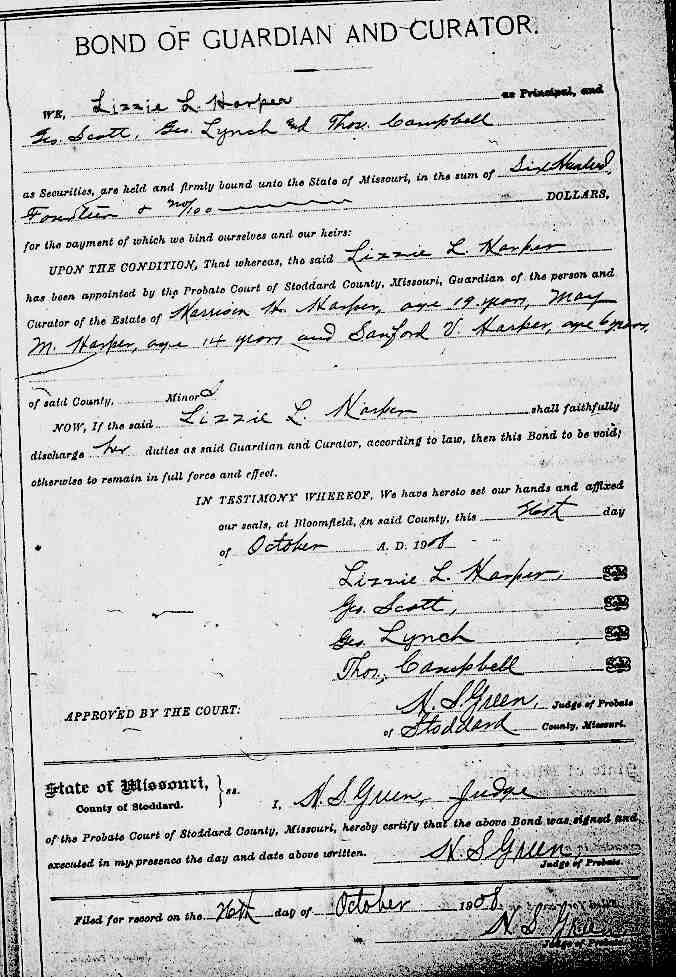 BOND OF GUARDIAN AND CURATOR.
WE, Lizzie L. Harper as Principal, and
Geo. Scott, Geo. Lynch and Thos. Campbell
as Securities, are held and firmly bound unto the State of Missouri, in the sum of Six Hundred,
Fourteen & no/100 DOLLARS,
for the payment of which we bind ourselves and our heirs:
UPON THE CONDITION, That whereas, the said Lizzie L. Harper
has been appointed by the Probate Court of Stoddard County, Missouri, Guardian of the person and
Curator of the Estate of Harrison H. Harper, age 19 years, May
M. Harper, age 14 years and Sanford V. Harper, age 6 years,
of said County, Minors
NOW, If the said Lizzie L. Harper shall faithfully
discharge her duties as said Guardian and Curator, according to law, then this Bond to be void;
otherwise to remain in full force and effect.
IN TESTIMONY WHEREOF, We have hereto set our hands and affixed
our seals, at Bloomfield, in said County, this 26th day
of October A. D. 1908
Lizzie L. Harper, Seal
Geo. Scott, Seal
Geo. Lynch Seal
Thos. Campbell Seal
APPROVED BY THE COURT: N. S Green, Judge of Probate
of Stoddard County, Missouri.
State of Missouri, } ss.
County of Stoddard. I, N. S Green, Judge
of the Probate Court of Stoddard County, Missouri, hereby certify that the above Bond was signed and
executed in my presence the day and date above written. N. S Green,
Judge of Probate.
Filed for record on the 26th day of October 1908
N. S Green
Judge of Probate.